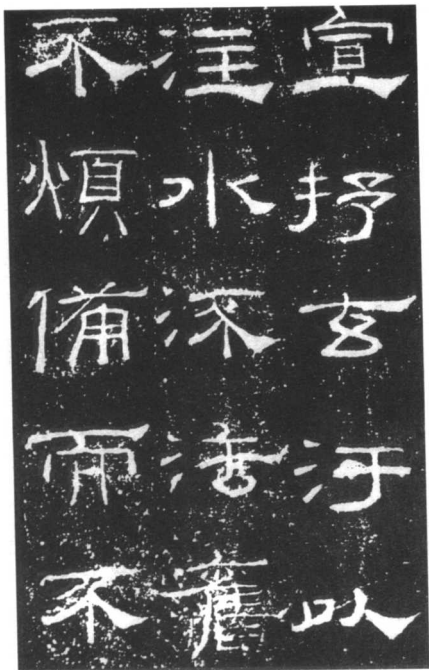 宣抒玄汙以
注水流法舊
不煩備而不